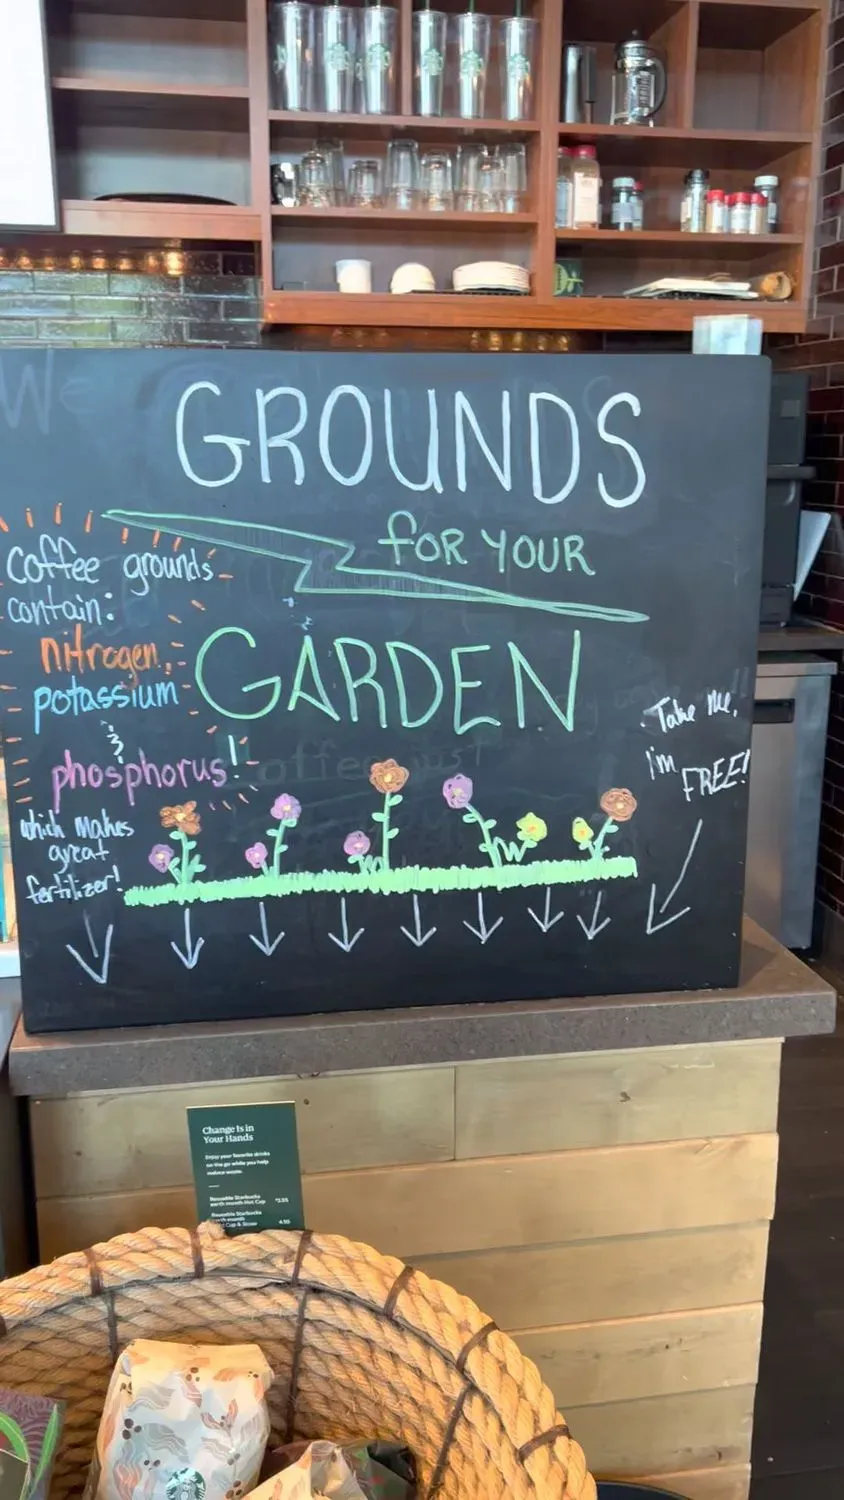 GROUNDS
FOR YOUR
GARDEN
Coffee grounds
contain:
nitrogen,
potassium
&
phosphorus!
which makes
great
fertilizer!
Take me,
I'm
FREE!
Change Is in
Your Hands
Enjoy your favorite drinks
on the go while you help
reduce waste.
Reusable Starbucks
earth month Hot Cup
Reusable Starbucks
earth month
Cup & Straw 4.95